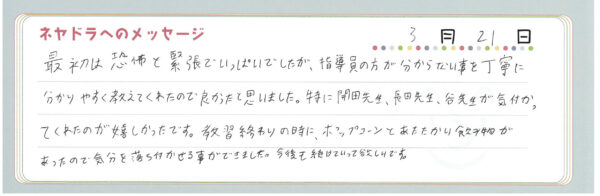 ネヤドラへのメッセージ 3月21日
最初は恐怖と緊張でいっぱいでしたが、指導員の方が分からない事を丁寧に
分かりやすく教えてくれたので良かったと思いました。特に開田先生、長田先生、谷先生が気付か,
てくれたのが嬉しかったです。教習終わりの時に、ポップコーンとあたたかい飲み物が
あったので気分を落ち付かせる事ができました。今後も続けていって欲しいです。